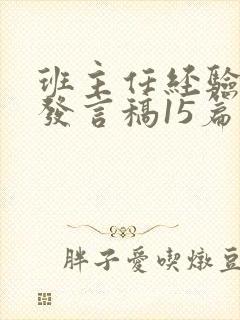 班主任経驗
發言稿15篇
胖子愛喫燉豆